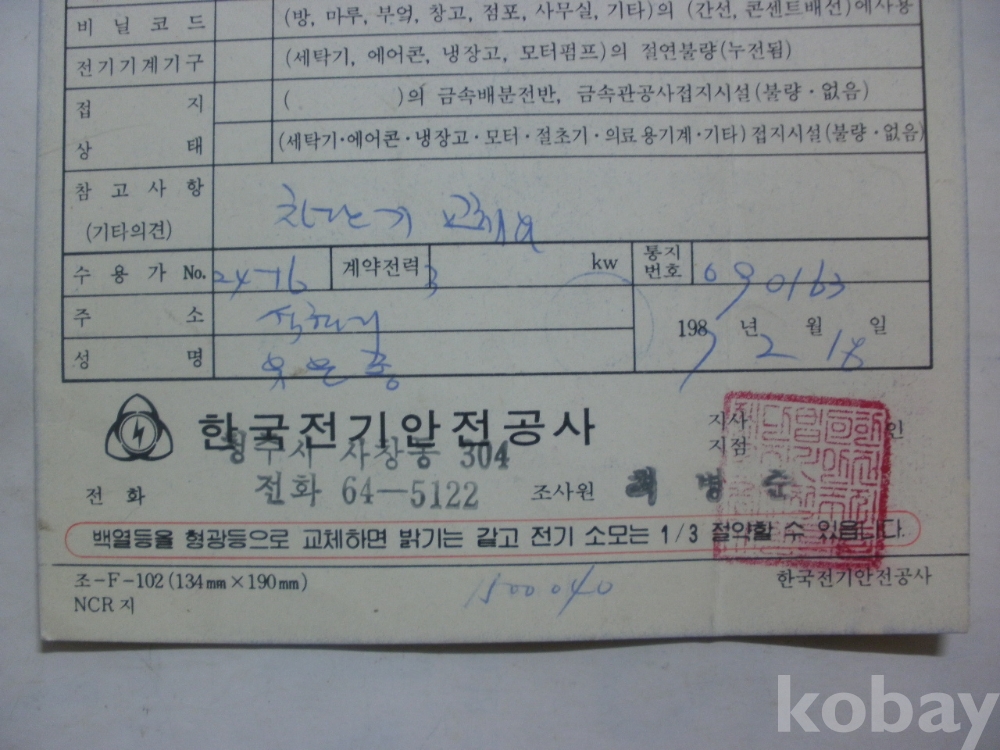 비닐코드 (방, 마루, 부엌, 창고, 점포, 사무실, 기타)의 (간선, 콘센트배선)에사용
전기기계기구 (세탁기, 에어콘, 냉장고, 모터펌프)의 절연불량(누전됨)
접지 ( )의 금속배분전반, 금속관공사접지시설(불량·없음)
상태 (세탁기·에어콘·냉장고·모터·절초기·의료용기계·기타) 접지시설(불량·없음)
참고사항
(기타의견) 차단기 교체요
수용가 No. 24-16 계약전력 3 kw 통지번호 090163
주소
성명
1987년 2월 18일
한국전기안전공사 지사
지점 인
청주시 사창동 304
전화 전화 64-5122 조사원 병준
백열등을 형광등으로 교체하면 밝기는 같고 전기 소모는 1/3 절약할 수 있읍니다.
조-F-102 (134mm×190mm) 한국전기안전공사
NCR 지
1500040
kobay